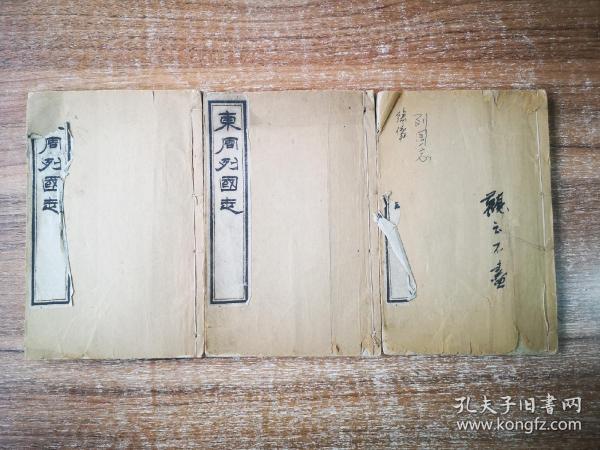 周列國志
東周列國志
列国志
觀之不盡
孔夫子旧書网
www.kongfz.com